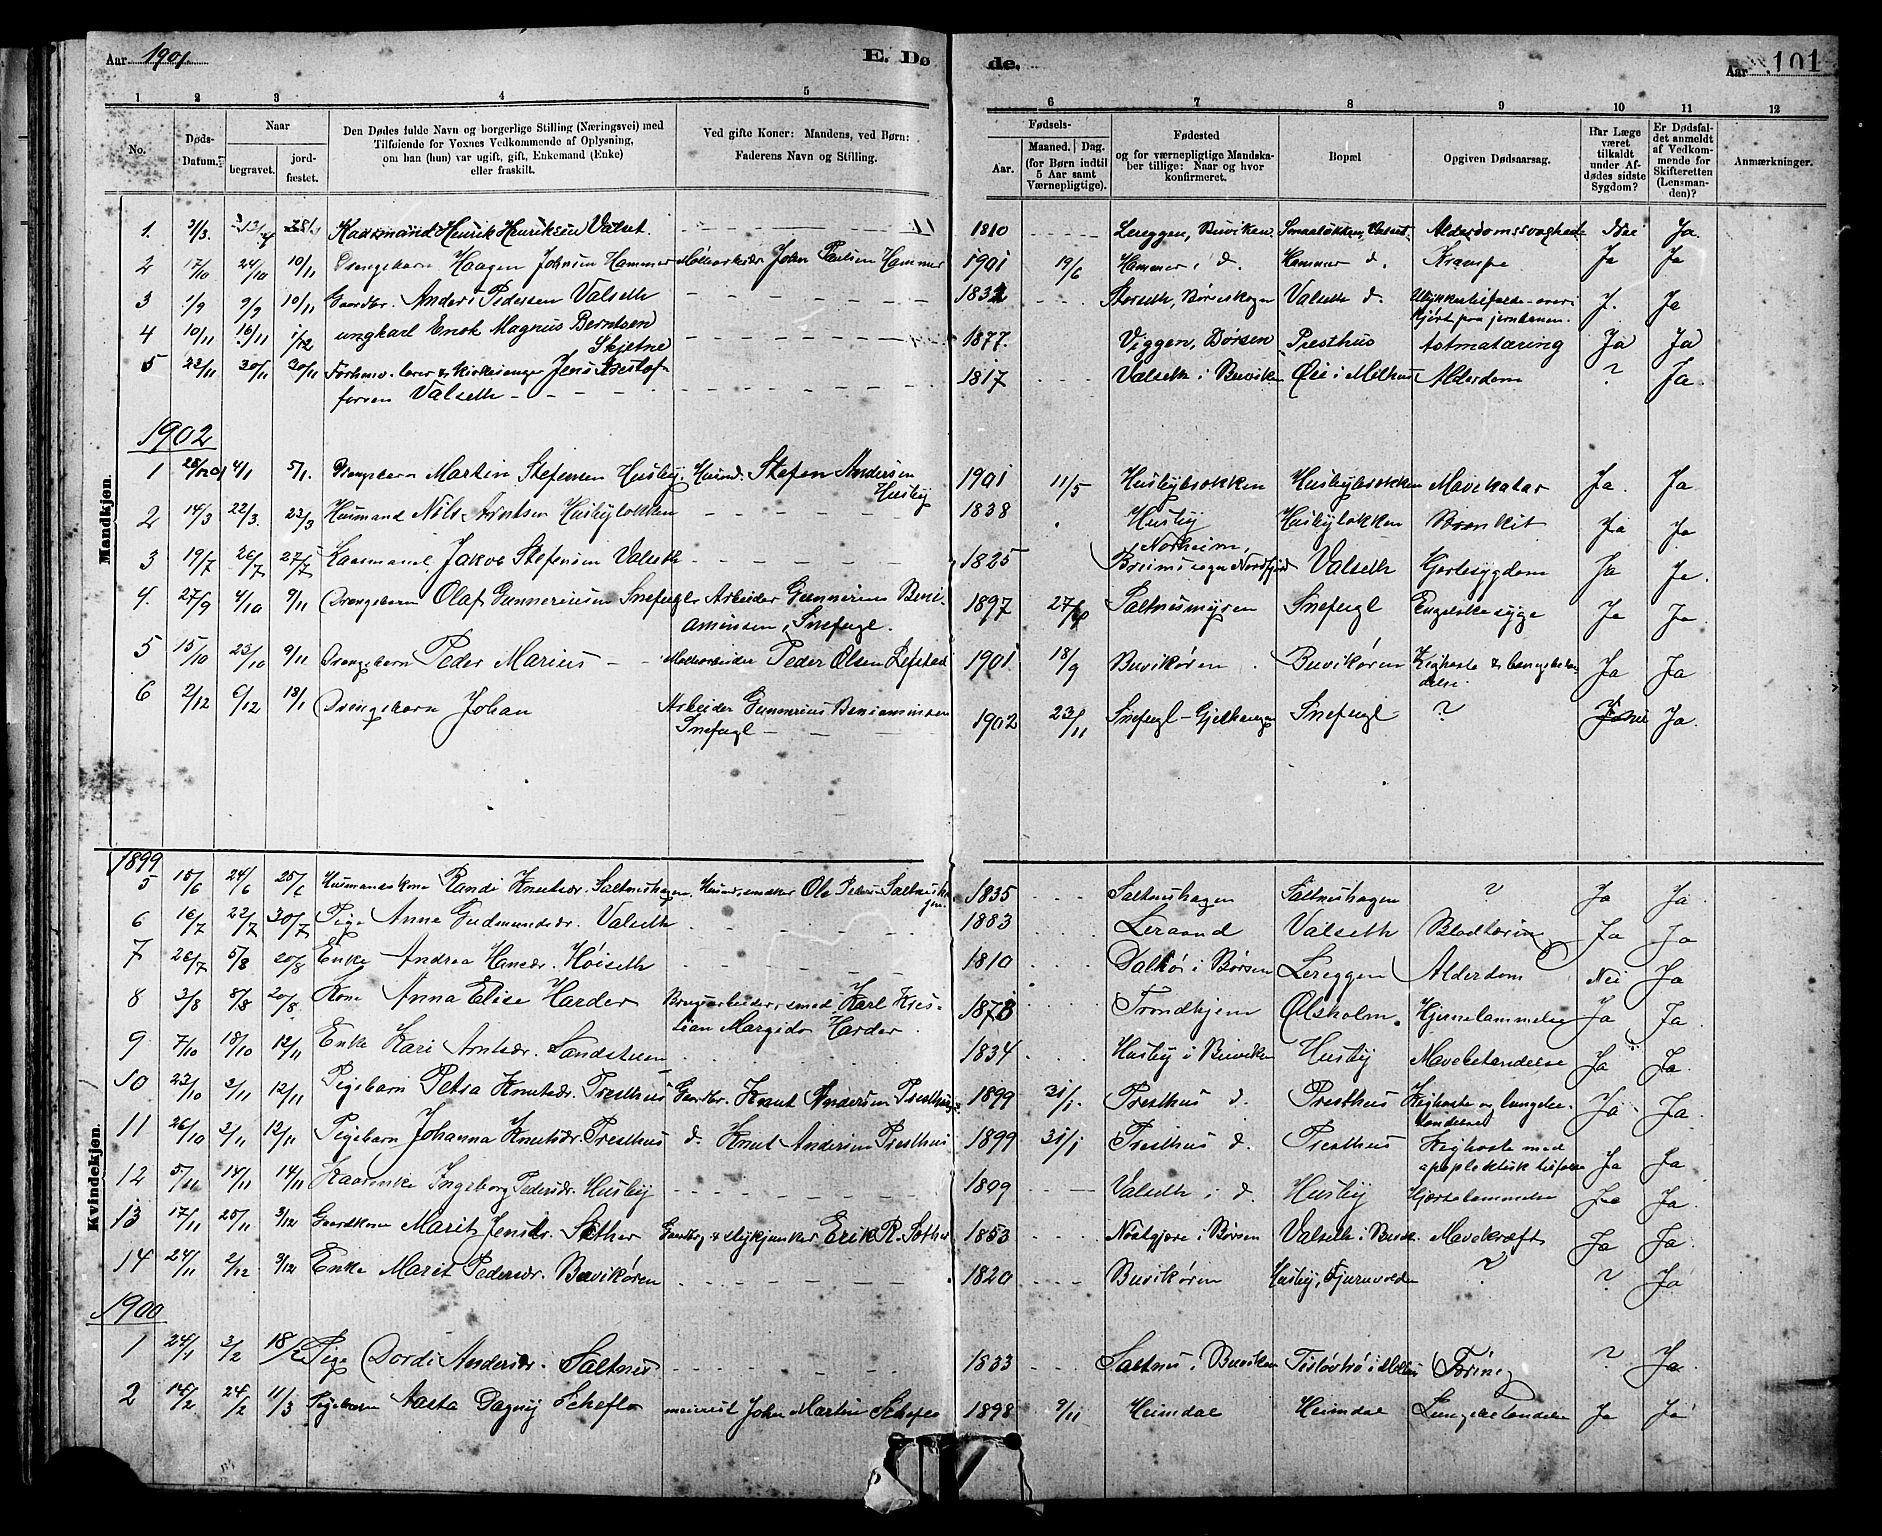 Aar 1901. E. Dø de. Aar 101
1 2 3 4 5 6 7 8 9 10 11 12
No.
Døds-Datum.
Naar
begravet.
jord-fæstet.
Den Dødes fulde Navn og borgerlige Stilling (Næringsvei) med
Tilføiende for Voxnes Vedkommende af Oplysning,
om han (hun) var ugift, gift, Enkemand (Enke)
eller fraskilt.
Ved gifte Koner: Mandens, ved Børn:
Faderens Navn og Stilling.
Fødsels-
Aar.
Maaned. Dag.
(for Børn indtil
5 Aar samt
Værnepligtige).
Fødested
og for værnepligtige Mandska-
ber tillige: Naar og hvor
konfirmeret.
Bopæl
Opgiven Dødsaarsag.
Har Læge
været
tilkaldt
under Af-
dødes sidste
Sygdom?
Er Dødsfal-
det anmeldt
af Vedkom-
mende for
Skifteretten
(Lensman-
den)?
Anmærkninger.
Mandkjøn.
1. 3/3. Kaarmand Henrik Henriksen Valset. 1810 Lereggen, Buviken Alderdomssvaghed Ja.
2 17/10 24/10 10/11 Drengebarn Haagen Johnsen Hammer John Paulsen Hammer 1901 19/6 Hammer i d. Hammer d. Krampe Ja Ja
3 1/9 9/9 10/11 Gaardbr. Anders Pedersen Valseth Valseth d. Ulykkestilfælde - over- J. Ja
kjørt paa jernbanen.
4 10/11 16/11 1/12 ungkarl Enok Magnus Berntsen 1877. Viggen, Børsen Presthus Ja Ja
Skjetne
5 22/11 30/11 30/11 Forhenv. lærer & kirkesanger Jens Kristof- 1817 Valseth i Buviken Øie i Melhus Alderdom ? Ja.
fersen Valseth
1902
1 4/1 5/1. Drengebarn Martin Stefensen Husby. Husmd. Stefen Andersen 1901 11/5 Mavekatar Ja. Ja
Husby
2 14/3 22/3. 23/3 Husmand Nils Arntsen Husbyløkken 1838 Husby Husbyløkken Bronkit Ja Ja
3 19/7 26/7 27/7 Kaarmand Jakob Stefensen Valseth 1825 Norheim, Valseth Ja Ja.
Breims sogn Nordfjord
4. 27/9 4/10 9/11 Drengebarn Olaf Gunneriusen Snefugl Arbeider Gunnerius Beni- 1897 Saltnesmyren Snefugl Engelske syge Ja Ja.
aminsen, Snefugl.
5 15/10 23/10 9/11 Drengebarn Peder Marius Peder Olsen 1901 18/9 Buvikøren Buvikøren Kighoste & lungebetæn- Ja Ja
delse.
6 2/12 6/12 18/1 Drengebarn Johan Arbeider Gunnerius Beniaminsen 1902 23/11 Snefugl Snefugl ? Ja.
Snefugl
Kvindekjøn.
1899
5 15/6 24/6 25/6 Husmandskone Randi Knutsdr. Saltneshagen. 1835 Saltneshagen Saltneshagen ? Ja Ja.
6 16/7 22/7 30/7 Pige Anne Gudmundsdr. Valseth 1883 Lersand Valseth Blodtæring Ja Ja
7 26/7 5/8 20/8 Enke Andrea Hansdr. Høiseth 1810 i Børsen Lereggen Alderdom Nei Ja
8 3/8 8/8 20/8. Kone Anna Elise Harder Brugsarbeider, smed Karl Kris- 1873 Trondhjem Ølsholm. Hjernelammelse Ja Ja.
tian Margido Harder.
9 7/10 18/10 12/11 Enke Kari Arntsdr. Sandstuen 1834 Husby i Buviken Husby Mavebetændelse Ja Ja.
10 23/10 3/11 12/11 Pigebarn Petra Knutsdr. Presthus Gaardbr. Knut Andersen Presthus 1899 31/1. Presthus d. Presthus Kighoste og lungebe- Ja Ja.
tændelse
11 26/10 3/11 12/11 Pigebarn Johanna Knutsdr. Presthus d. Knut Andersen Presthus 1899 31/1 Presthus d. Presthus Kighoste med Ja Ja
apoplektisk tilfælde
12 5/11 14/11 14/11 Kaarenke Ingeborg Pedersdr. Husby Valseth i d. Husby Hjertelammelse Ja Ja.
13 17/11 25/11 3/12 Gaardkone Marit Jensdr. Sæther Erik R. Sæther 1853 i Børsen Valseth i Buvik. Mavekræft Ja Ja.
14 24/11 2/12 3/12 Enke Marit Pedersdr. Buvikøren 1820 Buvikøren Husby, ? ? Ja
1900
1 24/1 3/2 18/2 Pige Dordi Andersdr. Saltnes 1833 Saltnes i Buviken Tæring ? Ja.
2 14/2 24/2 11/3 Pigebarn Aasta Dagny Schefle meierist John Martin Schefle 1898 9/11 Heimdal Heimdal Lungebetændelse Ja Ja